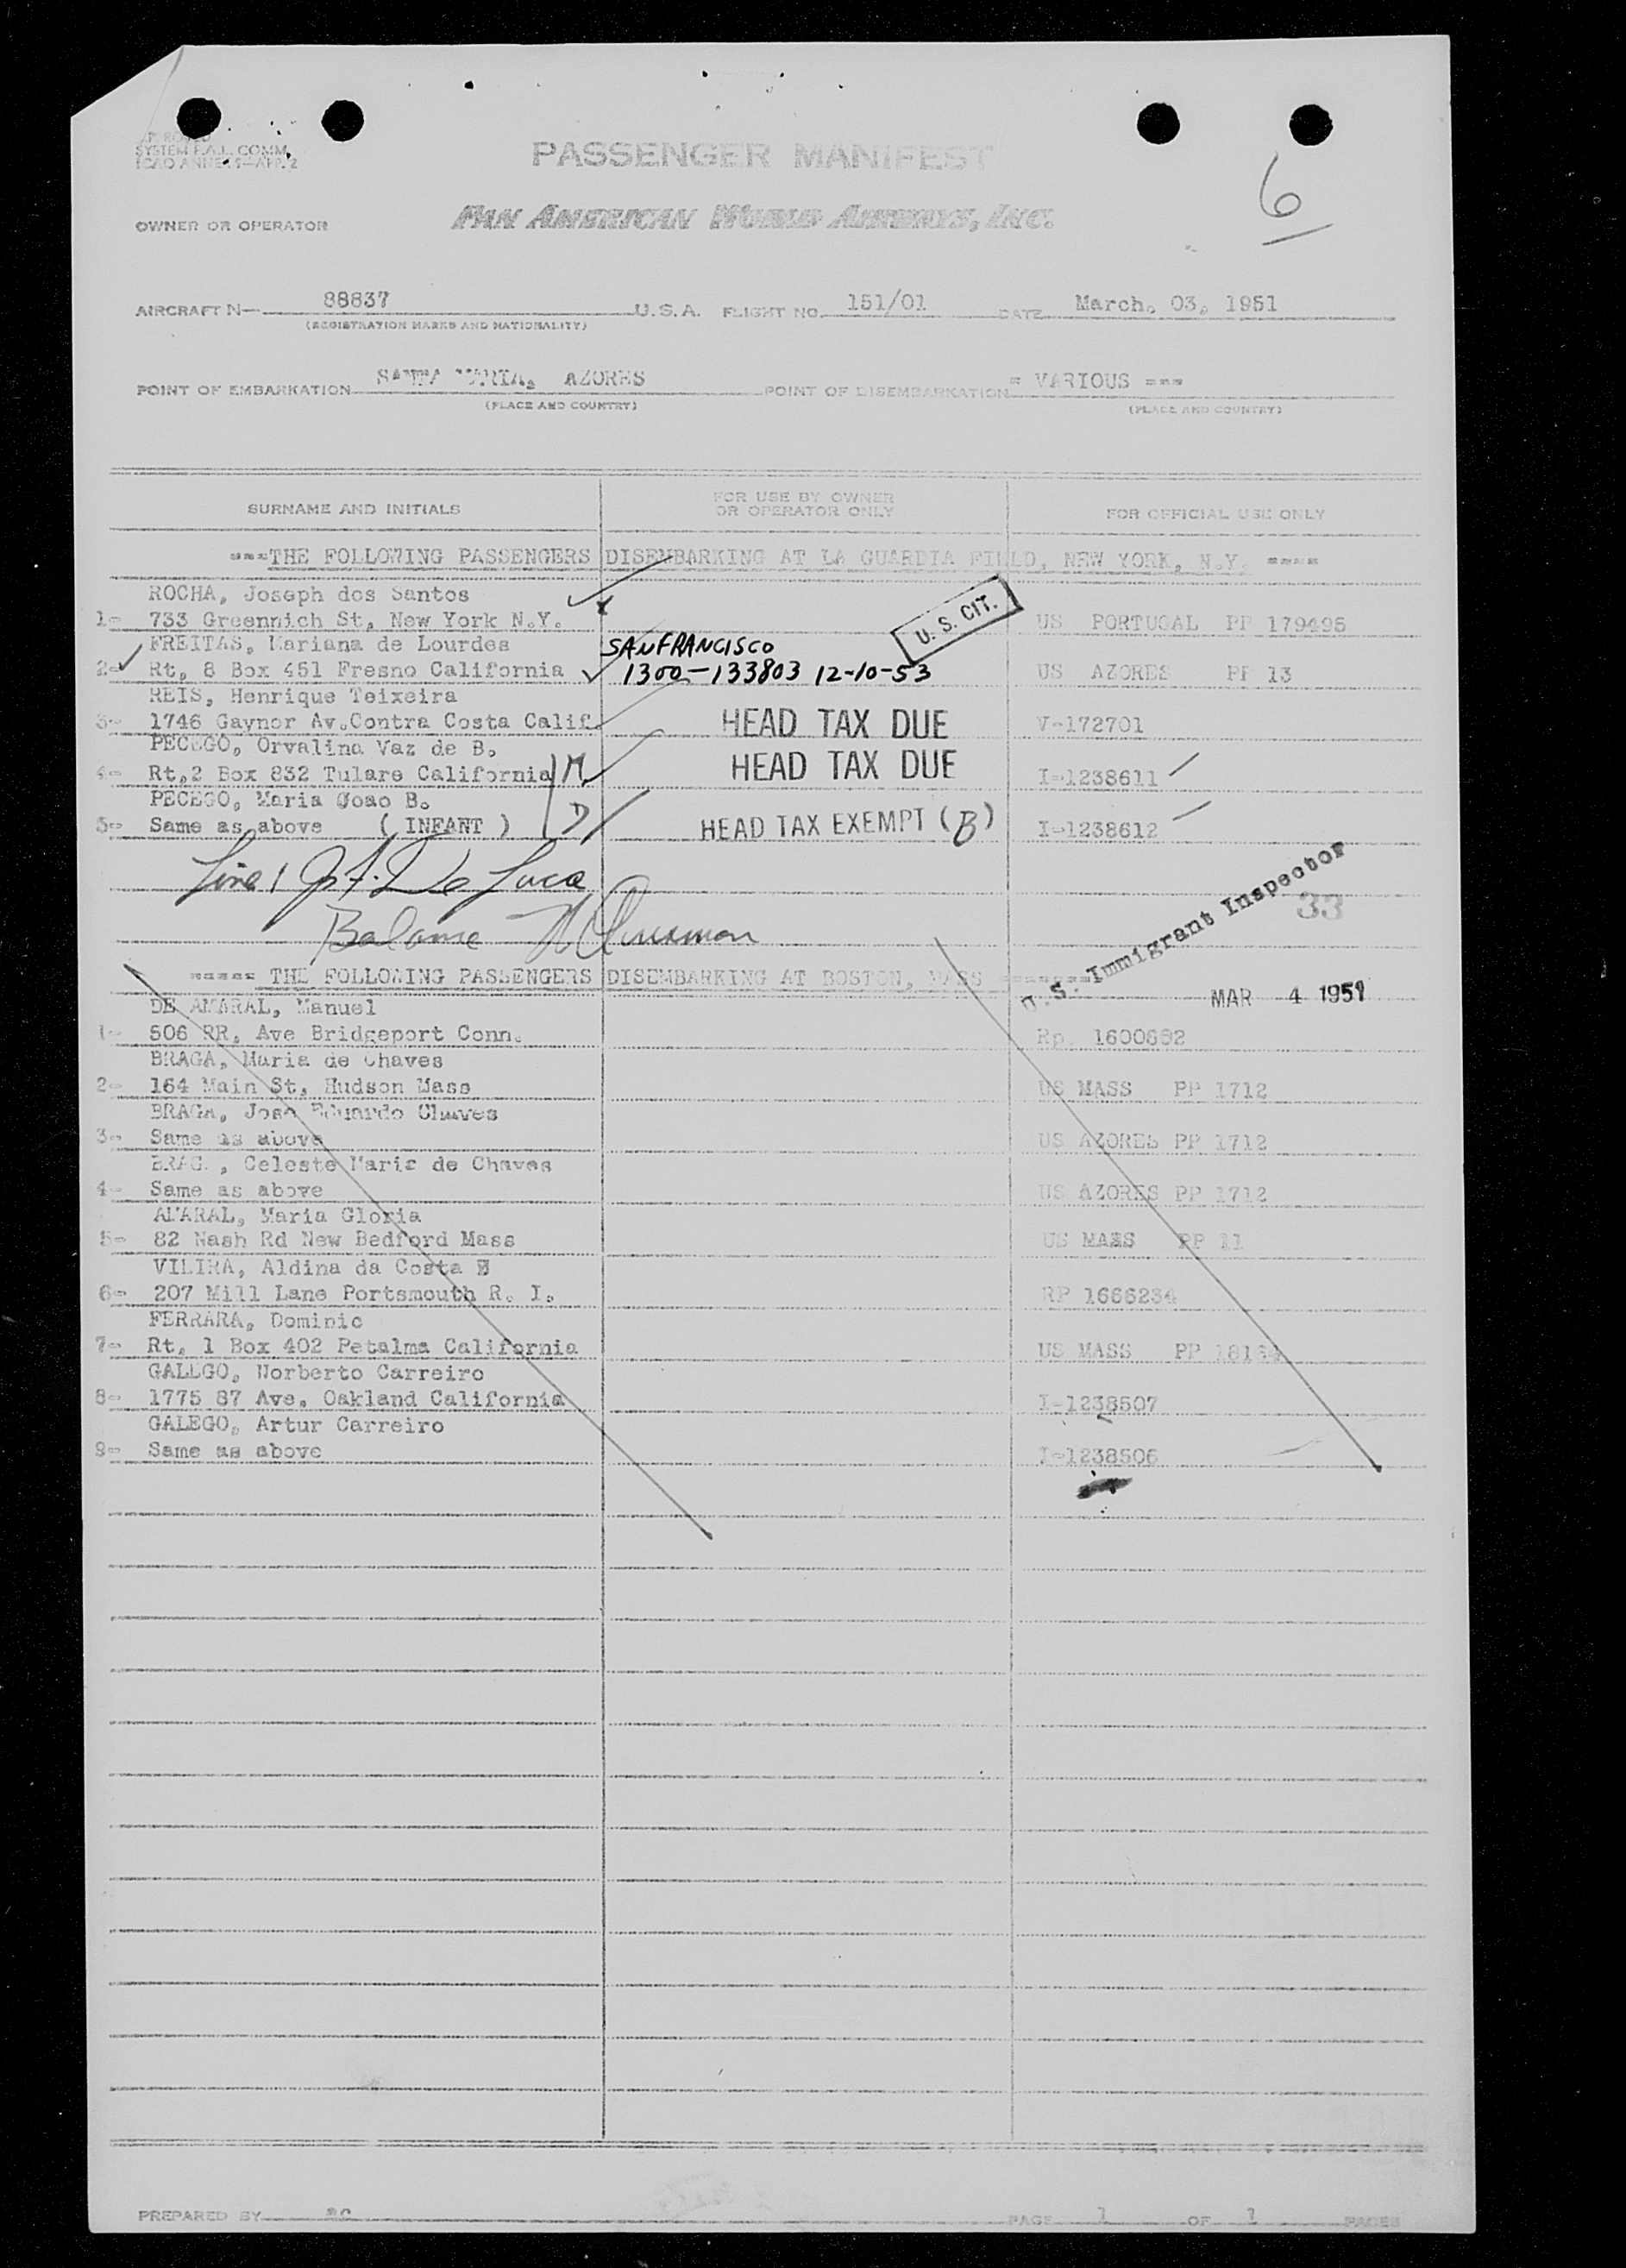 APPROVED
SYSTEM F.A.L. COMM.
ICAO ANNEX 9—APP. 2
PASSENGER MANIFEST
6
OWNER OR OPERATOR PAN AMERICAN WORLD AIRWAYS, INC.
AIRCRAFT N— 88837 U.S.A. FLIGHT NO. 151/01 DATE March, 03, 1951
(REGISTRATION MARKS AND NATIONALITY)
POINT OF EMBARKATION SANTA MARIA, AZORES POINT OF DISEMBARKATION = VARIOUS ===
(PLACE AND COUNTRY) (PLACE AND COUNTRY)
SURNAME AND INITIALS FOR USE BY OWNER OR OPERATOR ONLY FOR OFFICIAL USE ONLY
===THE FOLLOWING PASSENGERS DISEMBARKING AT LA GUARDIA FIELD, NEW YORK, N.Y. ====
ROCHA, Joseph dos Santos
1= 733 Greennich St, New York N.Y. U. S. CIT. US PORTUGAL PP 179495
FREITAS, Mariana de Lourdes SAN FRANCISCO
2= Rt, 8 Box 451 Fresno California 1300-133803 12-10-53 US AZORES PP 13
REIS, Henrique Teixeira
3= 1746 Gaynor Av.Contra Costa Calif. HEAD TAX DUE V-172701
PECEGO, Orvalina Vaz de B.
4= Rt,2 Box 832 Tulare California M HEAD TAX DUE I=1238611
PECEGO, Maria Joao B.
5= Same as above ( INFANT ) D HEAD TAX EXEMPT (B) I=1238612
Line 1 De Luca
Balance
U. S. Immigrant Inspector
33
===== THE FOLLOWING PASSENGERS DISEMBARKING AT BOSTON, MASS =======
MAR 4 1951
DE AMARAL, Manuel
1= 506 RR, Ave Bridgeport Conn. Rp. 1600692
BRAGA, Maria de Chaves
2= 164 Main St, Hudson Mass US MASS PP 1712
BRAGA, Jose Eduardo Chaves
3= Same as above US AZORES PP 1712
BRAGA, Celeste Maria de Chaves
4= Same as above US AZORES PP 1712
AMARAL, Maria Gloria
5= 82 Nash Rd New Bedford Mass US MASS PP 11
VILIRA, Aldina da Costa
6= 207 Mill Lane Portsmouth R. I. RP 1666234
FERRARA, Dominic
7= Rt, 1 Box 402 Petalma California US MASS PP
GALEGO, Norberto Carreiro
8= 1775 87 Ave, Oakland California I-1238507
GALEGO, Artur Carreiro
9= Same as above I-1238506
PREPARED BY PAGE 1 OF 1 PAGES